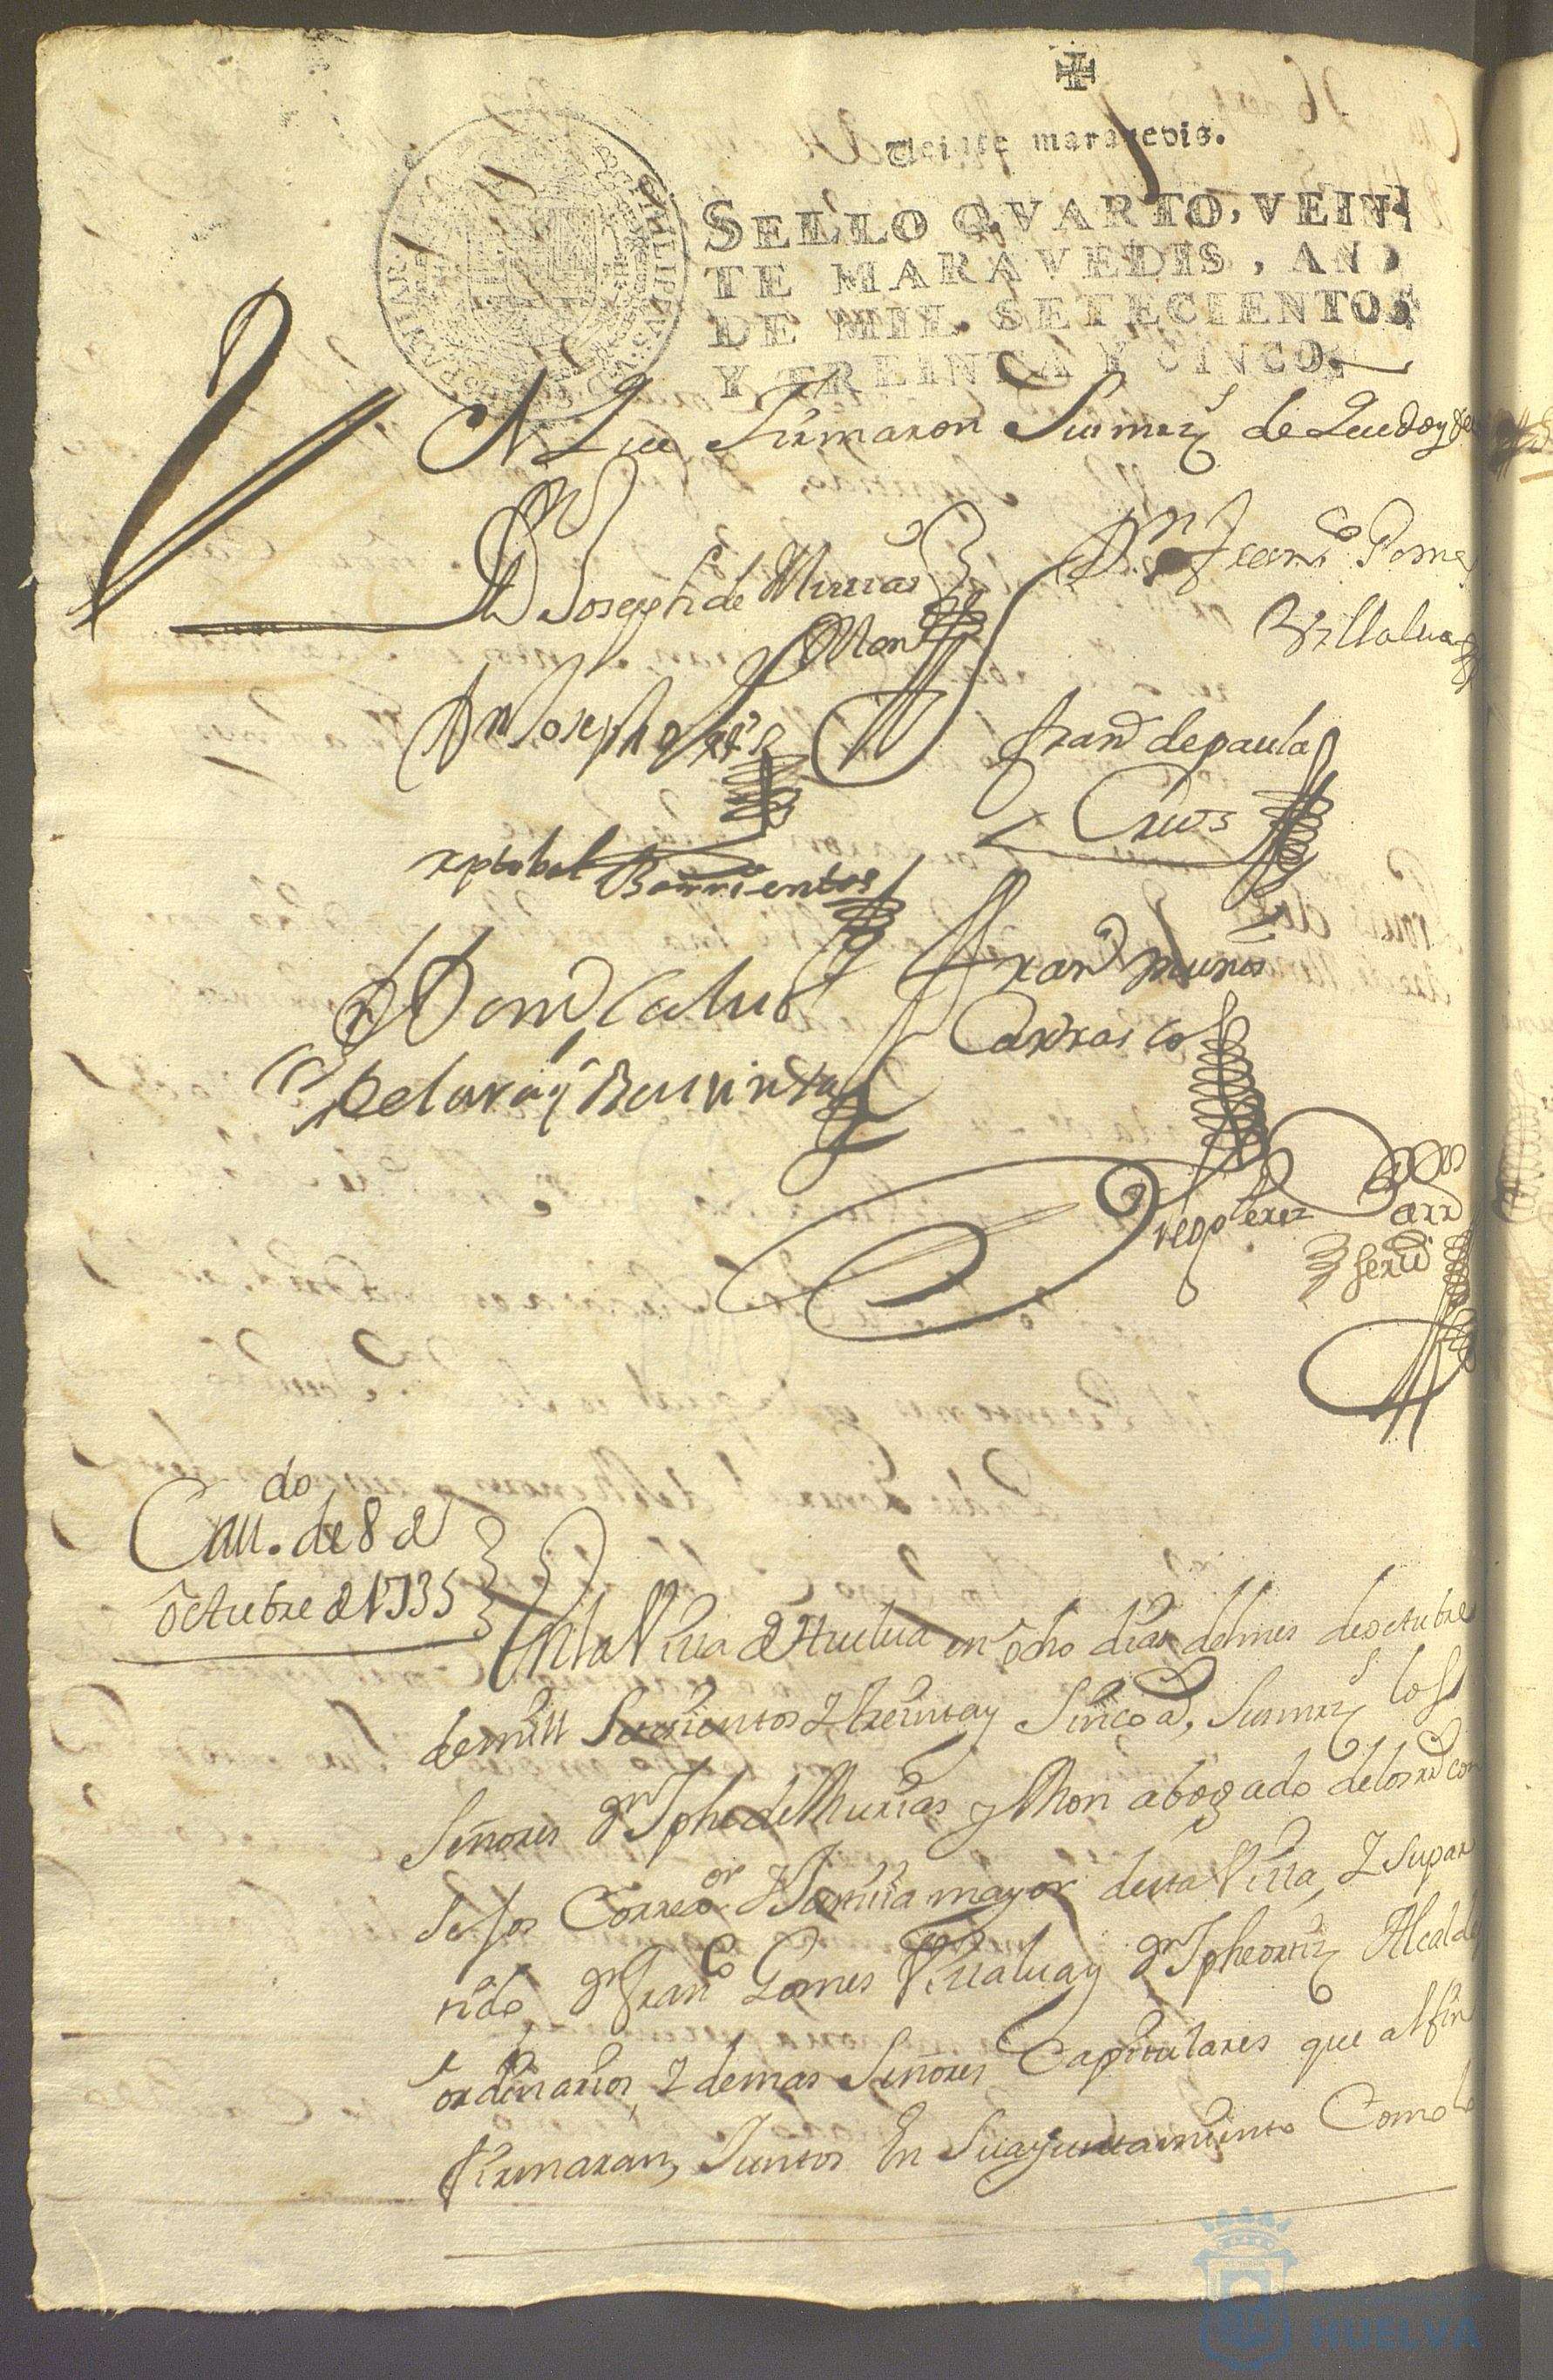 Veinte maravedis.
SELLO QVARTO, VEIN
TE MARAVEDIS, AÑO
DE MIL SETECIENTOS
Y TREINTA Y CINCO.
PHILIPPVS V D
Y lo firmaron Sus mrzs de que doy fee
Dn Joseph de Murias
y Mon
Dn Franco Gomez
Villalua
Dn Joseph ortiz
Frando de paula
Cruos
xptobal Barrientos
Frando muños
Carrasco
Dn Domo Calu
Diego Perez
Barr
serno
Caudo de 8 de
octubre de 1735
En la Villa de Huelua en ocho dias del mes de octubre
de mill Setesientos y treinta y Sinco as, Sus mrzs los
Señores Dn Jphe de Murias y Mon abogado de los Rs con
sejos Correor y Justizia mayor desta Villa, y su par
tido, Dn Franco Gomes Villalua y Dn Jphe ortiz Alcaldes
ordinarios, y demas Señores Capitulares que al fin
firmaran, Juntos En Su ayuntamiento Como lo
HUELVA